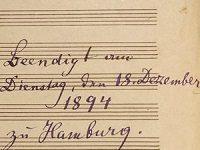 Beendigt am
Dienstag, den 18. Dezember
1894
zu Hamburg.